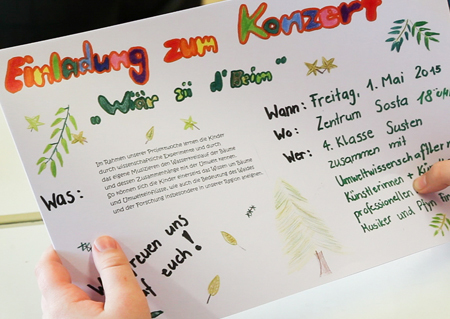 Einladung zum Konzert
„Wiär sii d'Beim"
Was:
Im Rahmen unserer Projektwoche lernen die Kinder
durch wissenschaftliche Experimente und durch
das eigene Musizieren den Wasserkreislauf der Bäume
und dessen Zusammenhänge mit der Umwelt kennen.
So können sich die Kinder einerseits das Wissen um Bäume
und Umwelteinflüsse, wie auch die Bedeutung des Waldes
und der Forschung insbesondere in unserer Region aneignen.
Wann: Freitag, 1. Mai 2015
Wo: Zentrum Sosta 18
Wer: 4. Klasse Susten
zusammen mit
Umweltwissenschaftler
Künstlerinnen +
professionellen
Musiker und Pfyn
freuen uns
auf euch!